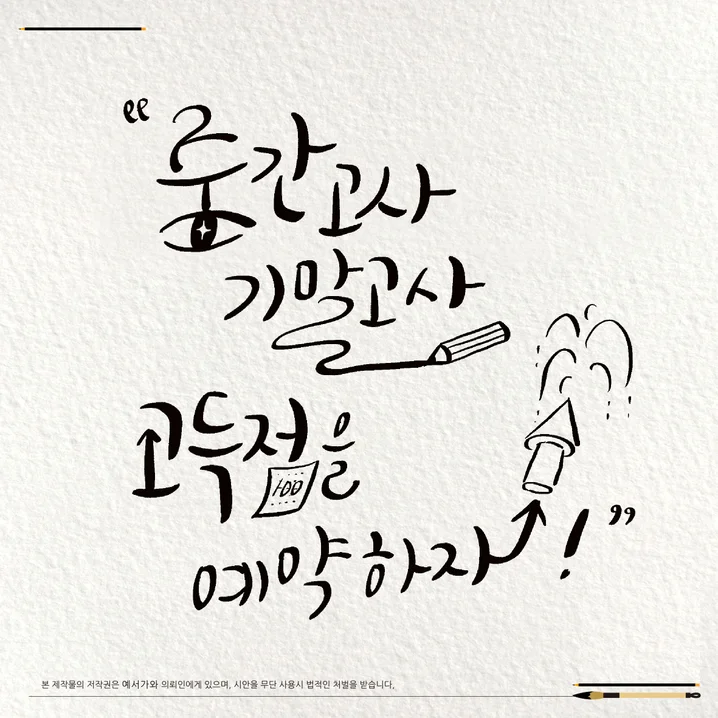 “중간고사
기말고사
고득점을
100
예약하자!”
본 제작물의 저작권은 예서가와 의뢰인에게 있으며, 시안을 무단 사용시 법적인 처벌을 받습니다.